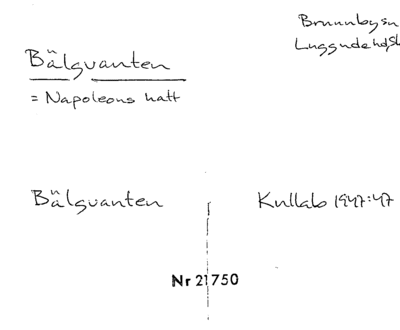 Brunnbysn
Luggudehdsk
Bälgvanten
= Napoleons hatt
Bälgvanten
Kullab 1947:47
Nr 21750